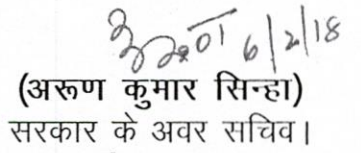 6/2/18
(अरूण कुमार सिन्हा)
सरकार के अवर सचिव।